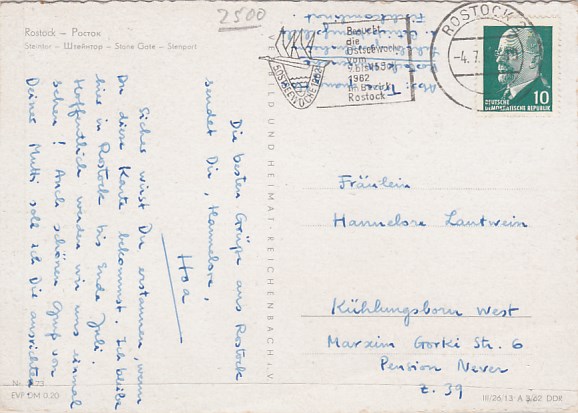 2500
Rostock – Росток
Steintor – Штейнтор – Stone Gate – Stenport
Die besten Grüße aus Rostock
sendet Dir, Hannelore,
Hoa
Sicher wirst Du erstaunen, wenn
Du diese Karte bekommst. Ich bleibe
hier in Rostock bis Ende Juli.
Hoffentlich werden wir uns einmal
sehen! Auch schönen Gruß von
Deiner Mutti soll ich Die ausrichten
EVP DM 0.20
VERLAG BILD UND HEIMAT · REICHENBACH i. V.
OSTSEEWOCHE 1962
Besucht
die
Ostseewoche
vom
1962
im Bezirk
Rostock
ROSTOCK
-4.7.
DEUTSCHE
DEMOKRATISCHE REPUBLIK
10
Fräulein
Hannelore Lantwein
Kühlungsborn West
Marxim Gorki Str. 6
Pension Never
Z. 39
III/26/13 A 3/62 DDR